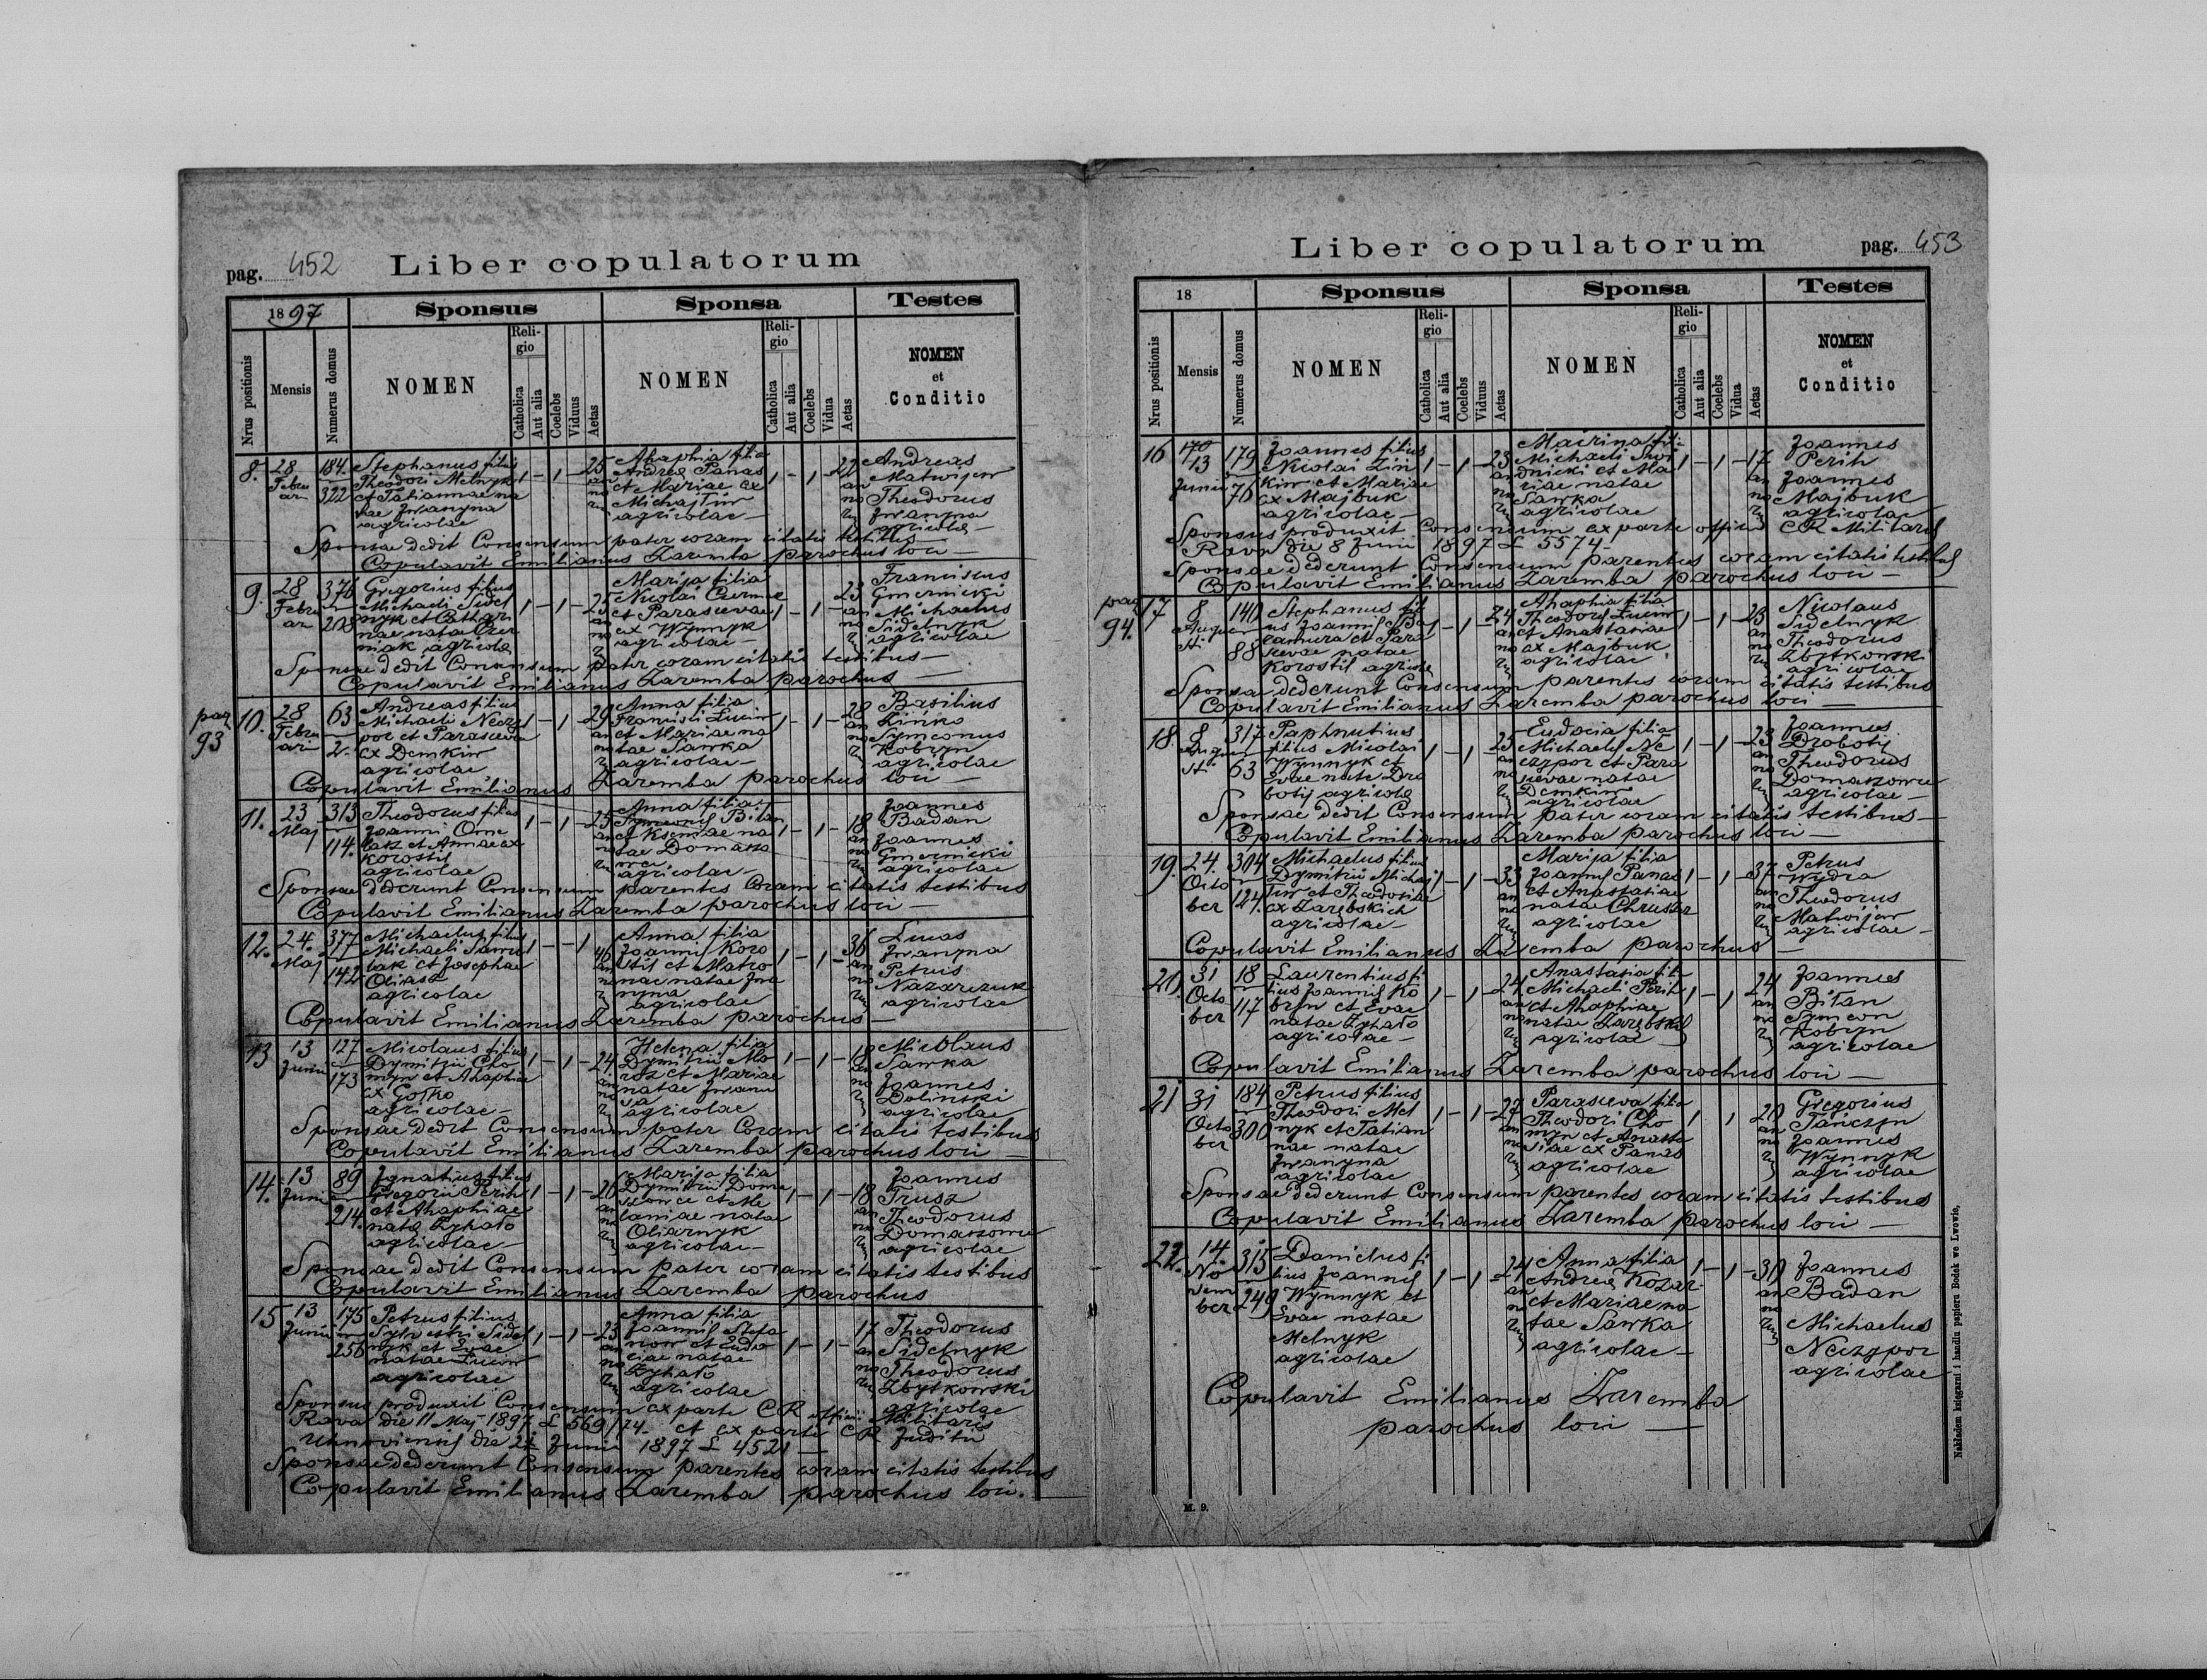 pag. 452 Liber copulatorum
1897 Sponsus Sponsa Testes
Nrus positionis Mensis Numerus domus NOMEN Religio Catholica Aut alia Coelebs Viduus Aetas NOMEN Religio Catholica Aut alia Coelebs Vidua Aetas NOMEN et Conditio
8. 28 Februar 184. 322
Stephanus filius
Theodori Melnyk
et Tatiannae na
tae Iwanyna
agricolae
1 - 1 - 25 annorum
Ahaphia filia
Andreae Panas
et Mariae ex
Michajliw
agricolae
1 - 1 -
Andreas
Matwijew
Theodorus
Iwanyna
agricolae
Sponsae dedit Consensum pater coram citatis testibus
Copulavit Emilianus Zaremba parochus loci
9. 28 Februar 376 208
Gregorius filius
Michaeli Sidel
nyk et Cathari
nae natae Czer
niak agricolae
1 - 1 - 25 annorum
Marija filia
Nicolai
et Parascevae
ex Wynnyk
agricolae
1 - 1 - 23
Franciscus
Gmernicki
Michaelus
Sidelnyk
agricolae
Sponsae dedit Consensum pater coram citatis testibus
Copulavit Emilianus Zaremba parochus
pag 93
10. 28 Februar 63 2.
Andreas filius
Michaeli Neczy
por et Parascevae
ex Demkiw
agricolae
1 - 1 - 29
Anna filia
Francisci Luciw
et Mariae na
tae Sawka
agricolae
1 - 1 - 28
Basilius
Zinko
Symeonus
Kobryn
agricolae
Copulavit Emilianus Zaremba parochus loci
11. 23 Maj 313 114.
Theodorus filius
Joanni Ome
lasz et Annae ex
Korostil
agricolae
1 - 1 - 25
Anna filia
Symeonis Bilan
et Kseniae na
tae Domasz
owec
agricolae
1 - 1 - 18
Joannes
Badan
Joannes
Gmernicki
agricolae
Sponsae dederunt Consensum parentes Coram citatis testibus
Copulavit Emilianus Zaremba parochus loci
12. 24. Maj 377 142
Michaelus filius
Michaeli
et Josephae
agricolae
1 - - 1 46
Anna filia
Joannis Koro
stil et Matro
nae natae Iwa
nyna
agricolae
1 - 1 - 36
Lucas
Iwanyna
Petrus
Nazarczuk
agricolae
Copulavit Emilianus Zaremba parochus
13 13 Junii 127 173
Nicolaus filius
Dymitrii Cho
myn et Ahaphiae
ex Gosko
agricolae
1 - 1 - 24.
Helena filia
Dymitrii Mo
roz et Mariae
natae Iwanu
sa
agricolae
1 - 1 - 18
Nicolaus
Sawka
Joannes
Dolinski
agricolae
Sponsae dedit Consensum pater Coram citatis testibus
Copulavit Emilianus Zaremba parochus loci
14. 13 Junii 89 214.
Ignatius filius
Gregorii Perih
et Ahaphiae
natae Zyhalo
agricolae
1 - 1 - 20
Marija filia
Dymitrii Doma
szowec et Me
laniae natae
Oliarnyk
agricolae
1 - 1 - 18
Joannes
Trusz
Theodorus
Domaszowec
agricolae
Sponsae dedit Consensum pater coram citatis testibus
Copulavit Emilianus Zaremba parochus
15 13 Junii 175 256
Petrus filius
Sylvestri Sidel
nyk et Evae
natae Luciw
agricolae
1 - 1 - 23
Anna filia
Joannis Stefa
now et Eudo
ciae natae
Zyhalo
agricolae
1 - 1 - 17
Theodorus
Sidelnyk
Theodorus
Zbytkowski
agricolae
Sponsus produxit Consensum ex parte CR officii Militaris
Rava die 11 Maj 1897 L 569/74. et ex parte CR Juditii
Uhnoviensis die 22 Junii 1897 L 4521
Sponsae dederunt Consensum parentes coram citatis testibus
Copulavit Emilianus Zaremba parochus loci.
Liber copulatorum pag. 453
18 Sponsus Sponsa Testes
Nrus positionis Mensis Numerus domus NOMEN Religio Catholica Aut alia Coelebs Viduus Aetas NOMEN Religio Catholica Aut alia Coelebs Vidua Aetas NOMEN et Conditio
16 13 Junii 179 70
Joannes filius
Nicolai Zin
kiw et Mariae
ex Majbuk
agricolae
1 - 1 - 23
Macrina fili
Michaeli Swi
dnicki et Ma
riae natae
Sawka
agricolae
1 - 1 - 17
Joannes
Perih
Joannes
Majbuk
agricolae
Sponsus produxit Consensum ex parte officii CR Militaris
Rava die 8 Junii 1897 L 5574
Sponsae dederunt Consensum parentes coram citatis testibus
Copulavit Emilianus Zaremba parochus loci
pag 94.
17 8 August 140 88
Stephanus fili
us Joannis Ba
camura et Para
scevae natae
Korostil agricolae
1 - 1 - 24
Ahaphia filia
Theodori Luciw
et Anastasiae
ex Majbuk
agricolae
1 - 1 - 23
Nicolaus
Sidelnyk
Theodorus
Zbytkowski
agricolae
Sponsae dederunt Consensum parentes coram citatis testibus
Copulavit Emilianus Zaremba parochus loci
18. 8 August 317 63
Paphnutius
filius Nicolai
Wynnyk et
Evae natae Dro
botij agricolae
1 - 1 25
Eudocia filia
Michaelis Ne
czypor et Para
scevae natae
Demkiw
agricolae
1 - 1 - 23
Joannes
Drobotij
Theodorus
Domaszowec
agricolae
Sponsae dedit Consensum pater coram citatis testibus
Copulavit Emilianus Zaremba parochus loci
19. 24. October 304 124.
Michaelus filius
Dymitrii Michaj
liw et Theodosiae
ex Zarebskich
agricolae
1 - 1 - 33
Marija filia
Joannis Panas
et Anastasiae
natae Chruszcz
agricolae
1 - 1 - 37
Petrus
Wydra
Theodorus
Matwijew
agricolae
Copulavit Emilianus Zaremba parochus
20. 31 October 18 117
Laurentius fi
lius Joannis Ko
bryn et Evae
natae Zyhalo
agricolae
1 - 1 - 24
Anastasia fili
Michaeli Perih
et Ahaphiae
natae Zarebski
agricolae
1 - 1 24
Joannes
Bilan
Symeon
Kobryn
agricolae
Copulavit Emilianus Zaremba parochus loci
21 31 October 184 300
Petrus filius
Theodori Mel
nyk et Tatian
nae natae
Iwanyna
agricolae
1 - 1 - 27
Parasceva filia
Theodori Cho
myn et Anasta
siae ex Panas
agricolae
1 1 20
Gregorius
Tanczyn
Joannes
Wynnyk
agricolae
Sponsae dederunt Consensum parentes coram citatis testibus
Copulavit Emilianus Zaremba parochus loci
22. 14. November 315 249
Danielus fi
lius Joannis
Wynnyk et
Evae natae
Melnyk
agricolae
1 - 1 - 24
Anna filia
Andreae Kozar
et Mariae na
tae Sawka
agricolae
1 - 1 - 30
Joannes
Badan
Michaelus
Neczypor
agricolae
Copulavit Emilianus Zaremba
parochus loci
M. 9.
Nakładem księgarni i handlu papieru Bodek we Lwowie.